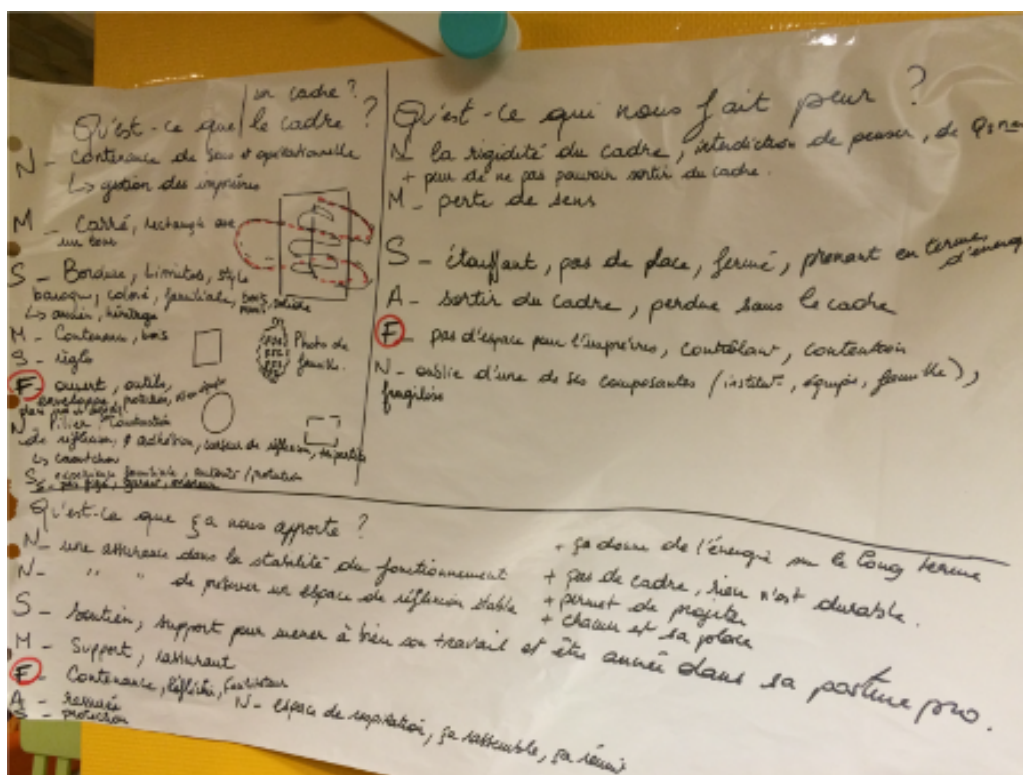 un cadre ?
Qu'est-ce que le cadre ?
N - Contenance de sens et opérationnelle
↳ gestion des imprévus
M - Carré, rectangle avec
un bord
S - Bordure, Limites, style
baroque, coloré, familiale, bois,
↳ ancien, héritage
M - Contenance, bois
S - règle
Photo de
famille.
F - ouvert, outils,
enveloppe, protection,
N - Pilier
de réflexion, adhésion, de réflexion, tripartite
↳ caoutchouc
S - familiale, autorité / protection
pas figé, garant,
Qu'est-ce qui nous fait peur ?
N - la rigidité du cadre, interdiction de penser, de
+ peur de ne pas pouvoir sortir du cadre.
M - perte de sens
S - étouffant, pas de place, fermé, prenant en terme
d'énergie
A - sortir du cadre, perdue sans le cadre
F - pas d'espace pour l'imprévus, contrôlant, contention
N - oublie d'une de ses composantes (institut-, équipes, famille),
fragilise
Qu'est-ce que ça nous apporte ?
N - une assurance dans la stabilité du fonctionnement
N - " " de préserver un espace de réflexion stable
S - Soutien, support pour mener à bien son travail et être ancrée dans sa posture pro.
M - Support, rassurant
F - Contenance, Réflective,
A - rassurée
S - protection
N - espace de respiration, ça rassemble, ça réunit
+ ça donne de l'énergie sur le long terme
+ pas de cadre, rien n'est durable.
+ permet de projeter
+ chacun est sa place